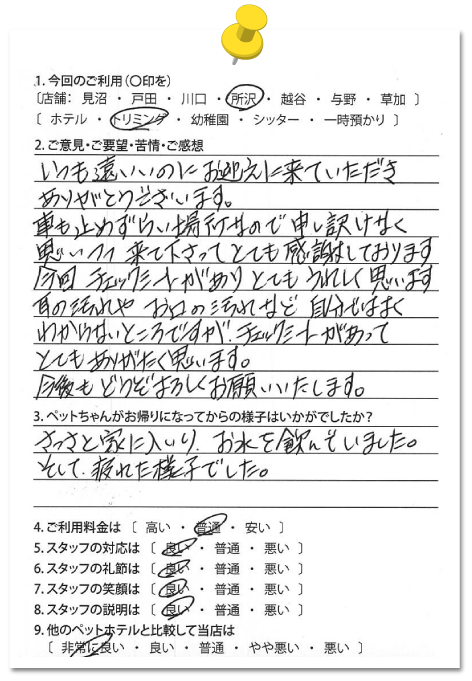 1. 今回のご利用(〇印を)
〔店舗： 見沼 ・ 戸田 ・ 川口 ・ 所沢 ・ 越谷 ・ 与野 ・ 草加 〕
〔 ホテル ・ トリミング ・ 幼稚園 ・ シッター ・ 一時預かり 〕
2. ご意見・ご要望・苦情・ご感想
いつも遠いいのにお迎えに来ていただき
ありがとうございます。
車も止めずらい場所なので申し訳けなく
思いつつ来て下さってとても感謝しております
今回チェックシートがありとてもうれしく思います
耳の汚れやお口の汚れなど自分ではよく
わからないところですが、チェックシートがあって
とてもありがたく思います。
今後もどうぞよろしくお願いいたします。
3. ペットちゃんがお帰りになってからの様子はいかがでしたか?
さっさと家に入いり、お水を飲んでいました。
そして、疲れた様子でした。
4. ご利用料金は 〔 高い ・ 普通 ・ 安い 〕
5. スタッフの対応は 〔 良い ・ 普通 ・ 悪い 〕
6. スタッフの礼節は 〔 良い ・ 普通 ・ 悪い 〕
7. スタッフの笑顔は 〔 良い ・ 普通 ・ 悪い 〕
8. スタッフの説明は 〔 良い ・ 普通 ・ 悪い 〕
9. 他のペットホテルと比較して当店は
〔 非常に良い ・ 良い ・ 普通 ・ やや悪い ・ 悪い 〕